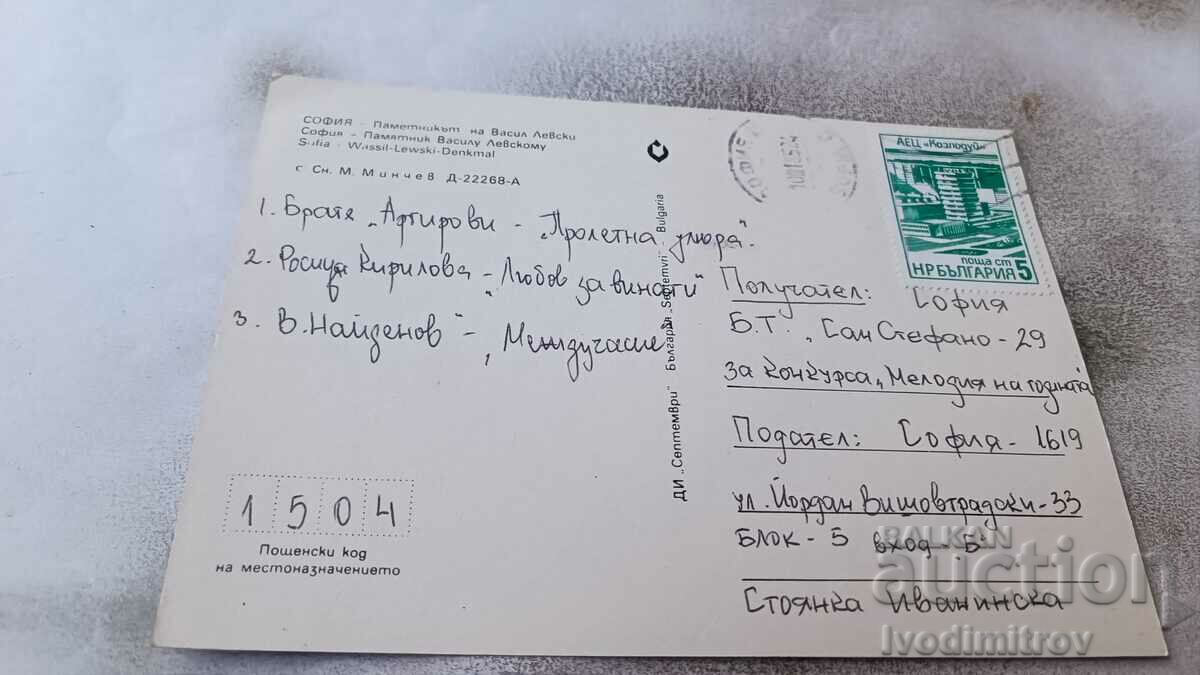 СОФИЯ - Паметникът на Васил Левски
София - Памятник Василу Левскому
Sofia - Wassil-Lewski-Denkmal
с Сн. М. Минчев Д-22268-А
1. Братя „Аргирови - „Пролетна умора".
2. Росица Кирилова - „Любов завинаги"
3. В. Найденов" - „Междучасие"
1504
Пощенски код
на местоназначението
ДИ „Септември" България „Septemvri" Bulgaria
АЕЦ „Козлодуй"
поща ст
НР БЪЛГАРИЯ 5
Получател: София
Б.Т. „Сан Стефано - 29
за конкурса „Мелодия на годината
Подател: София - 1619
ул. Йордан - 33
Блок - 5 вход - Б
Стоянка Иванинска
BALKAN
auction
Ivodimitrov